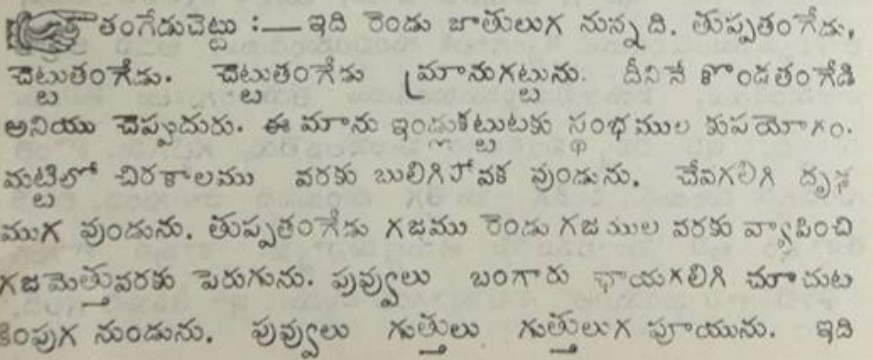 తంగేడుచెట్టు :— ఇది రెండు జాతులుగ నున్నది. తుప్పతంగేడు,
చెట్టుతంగేడు. చెట్టుతంగేడు మ్రానుగట్టును. దీనినే కొండతంగేడి
అనియు చెప్పుదురు. ఈ మాను ఇండ్లుకట్టుటకు స్థంభముల కుపయోగం.
మట్టిలో చిరకాలము వరకు బులిగిపోవక వుండును. చేవగలిగి దృఢ
ముగ వుండును. తుప్పతంగేడు గజము రెండు గజముల వరకు వ్యాపించి
గజమెత్తువరకు పెరుగును. పువ్వులు బంగారు ఛాయగలిగి చూచుట
కింపుగ నుండును. పువ్వులు గుత్తులు గుత్తులుగ పూయును. ఇది